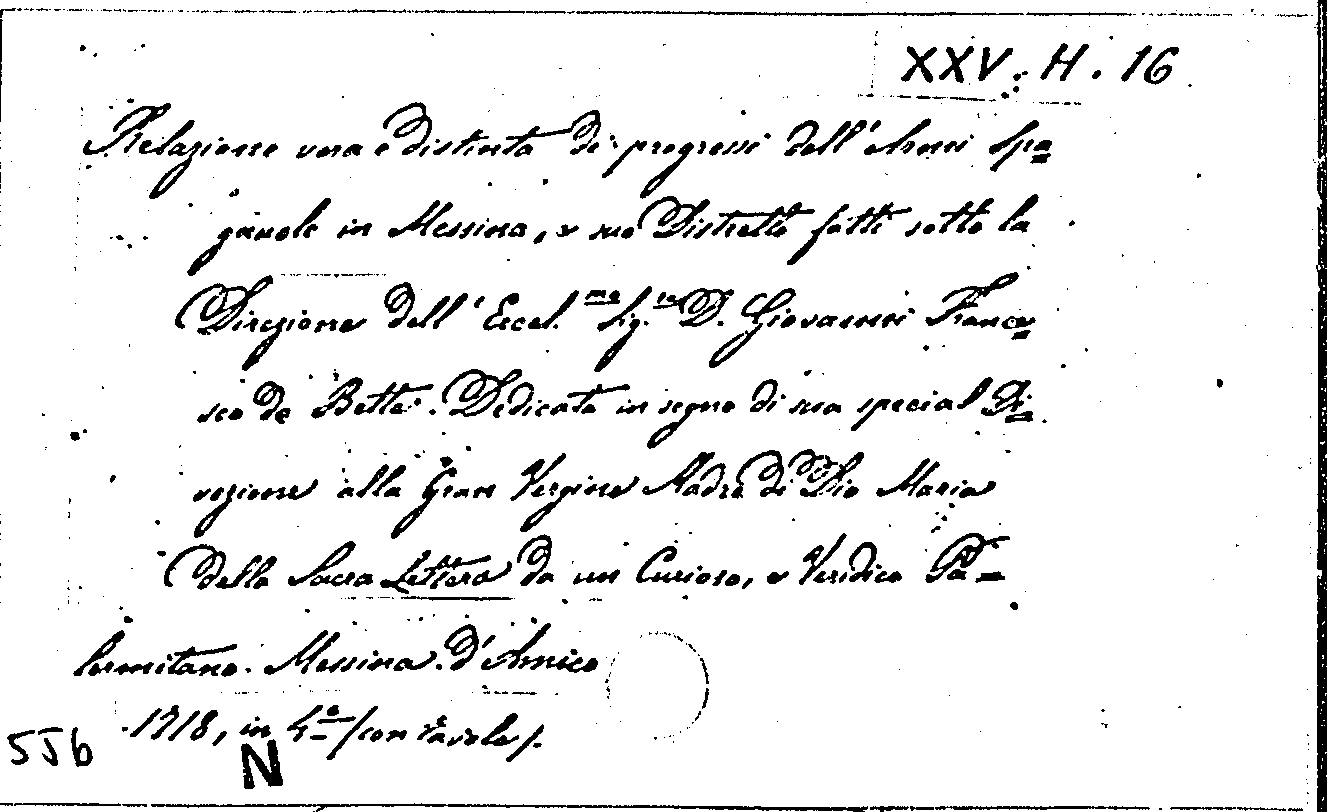 XXV. H. 16
Relazione vera e distinta de progressi dell'Armi Spa=
gnuole in Messina, e suo Distretto fatti sotto la
Direzione dell' Eccel.mo Sig.re D. Giovanni France=
sco de Bette. Dedicata in segno di sua special Di=
vozione alla Gran Vergine Madre di Dio Maria
della Sacra Lettera da un Curioso, e Veridico Pa=
lermitano. Messina. d'Amico
1718, in 4.o /con tavole/.
55b
N